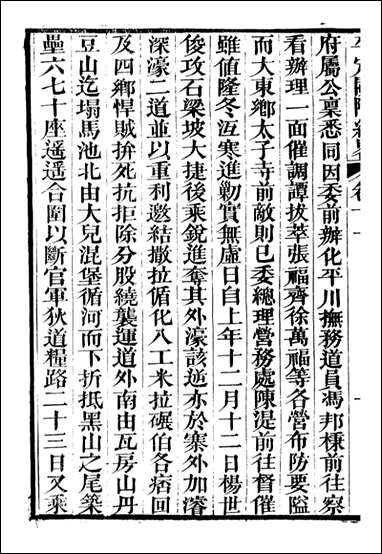 平定關隴紀畧 卷十一
府屬公稟悉同因委前辦化平川撫務道員馮邦棟前往察
看辦理一面催調譚拔萃張福齊徐萬福等各營布防要隘
而大東鄉太子寺前敵則已委總理營務處陳湜前往督催
雖值隆冬沍寒進勦實無虛日自上年十二月十二日楊世
俊攻石梁坡大捷後乘銳進奪其外濠該逆亦於寨外加濬
深濠二道並以重利邀結撒拉循化八工米拉碾伯各痞回
及四鄉悍賊拚死抗拒除分股繞襲運道外南由瓦房山丹
豆山迄塌馬池北由大兒混堡循河而下折抵黑山之尾築
壘六七十座遥遥合圍以斷官軍狄道糧路二十三日又乘